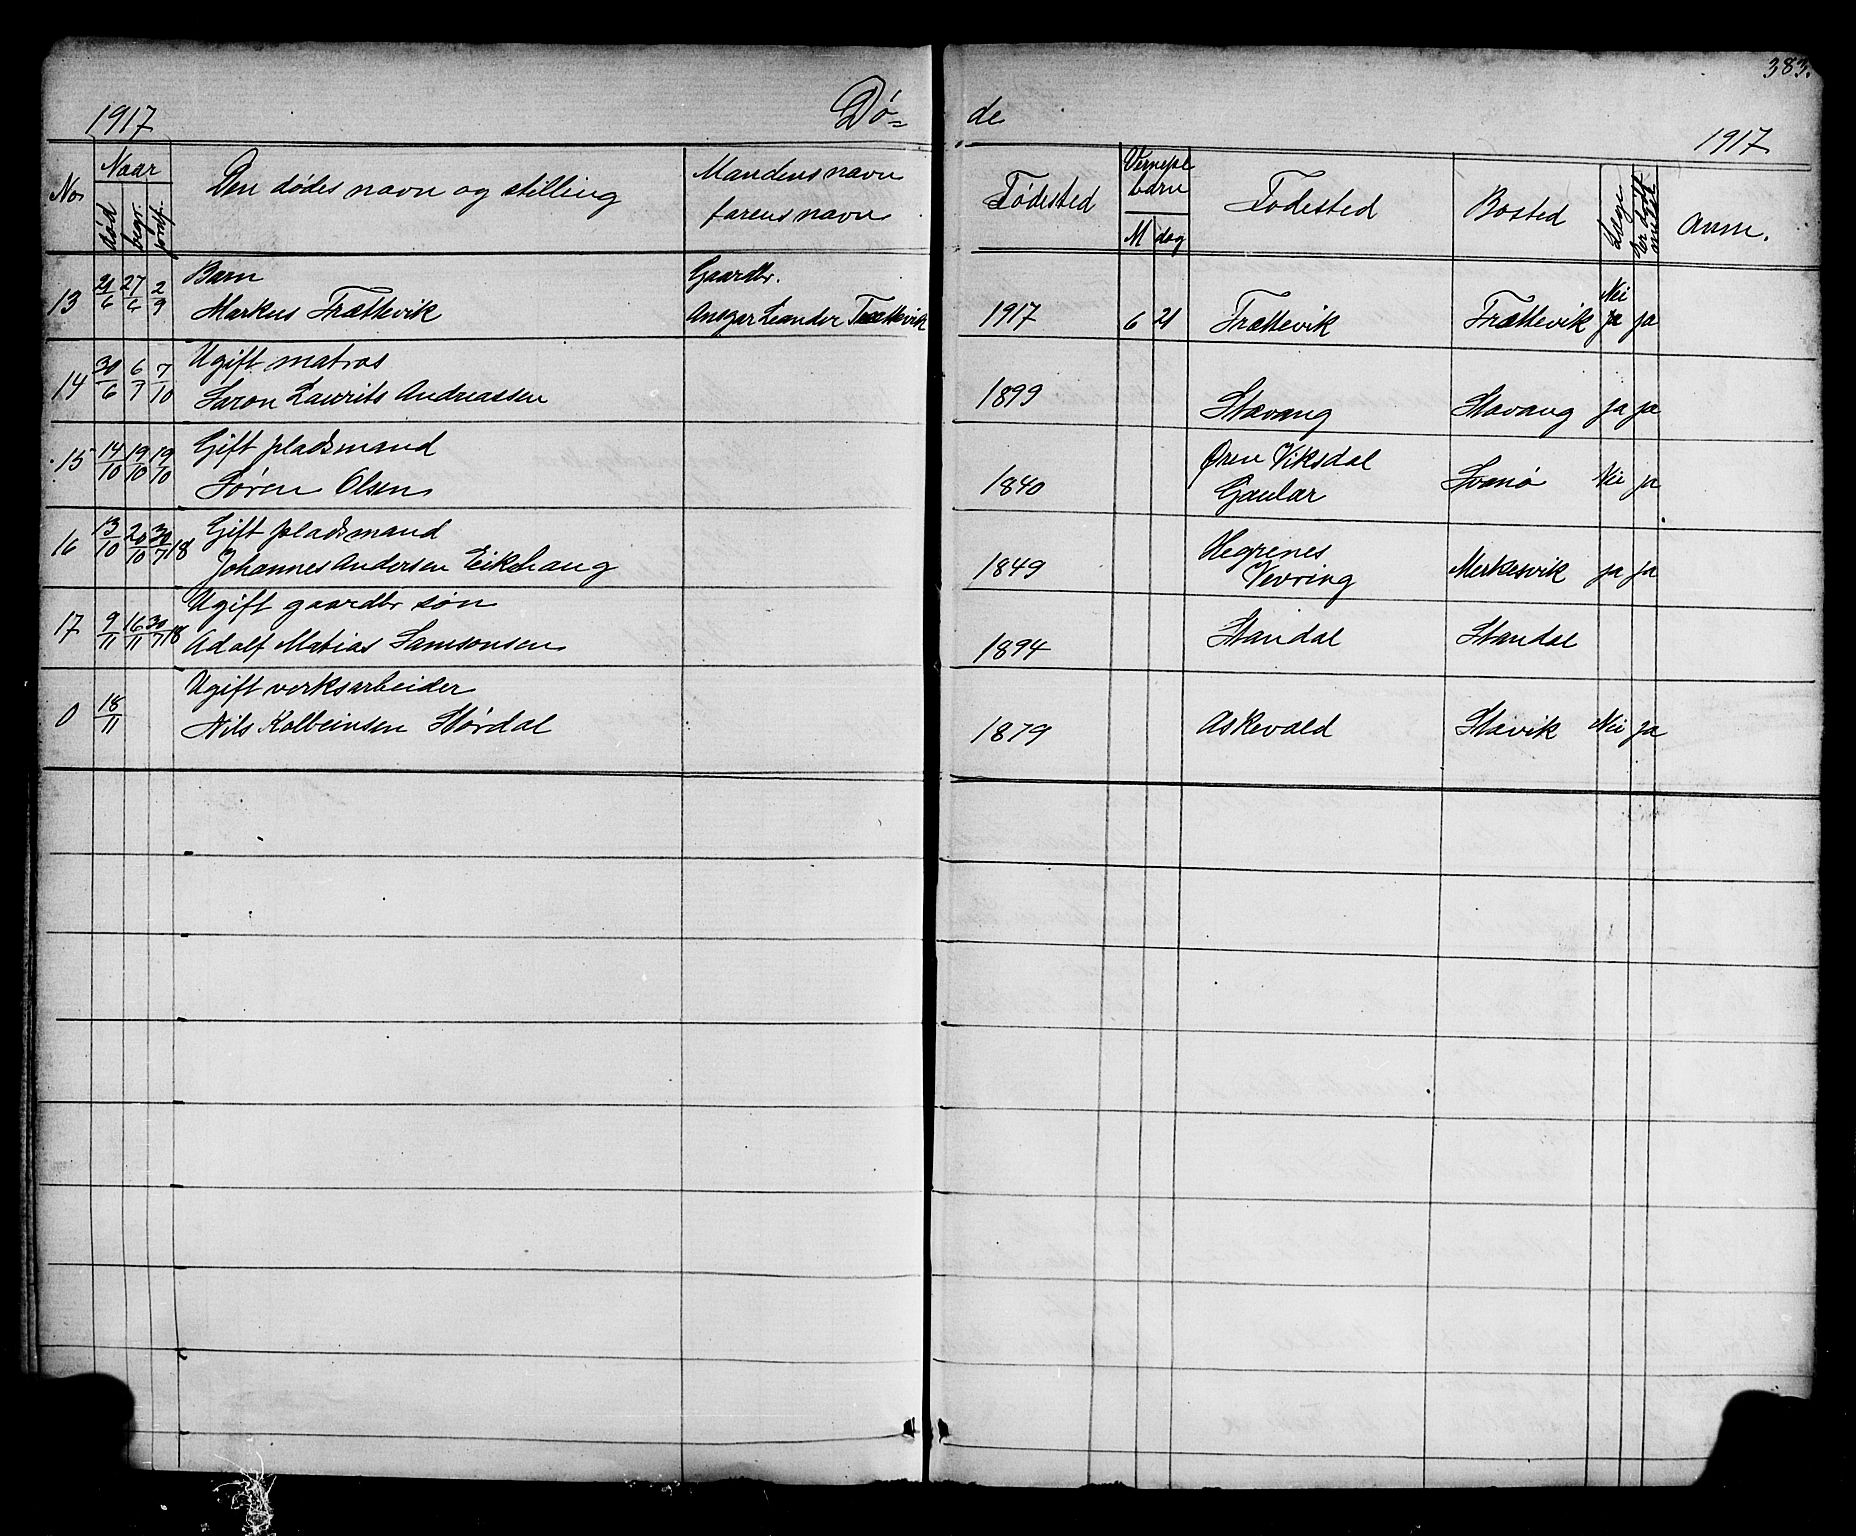 383.
1917 Dø= de 1917
No Naar Den dødes navn og stilling Mandens navn Fødested Vernepl Fødested Bosted Læge Anm.
død begr. jordf. farens navn barn
M dag
13 21/6 27/6 2/9 Barn Gaardbr. Nei
Markus Trættevik Ansgar Leander Trættevik 1917 6 21 Trættevik Trættevik ja ja
14 30/6 6/7 7/10 Ugift matros
Saron Laurits Andreassen 1899 Stavang Stavang ja ja
15 14/10 19/10 19/10 Gift pladsmand Øren Viksdal
Søren Olsen 1840 Gaular Svanø Nei ja
16 13/10 20/10 30/7 18 Gift pladsmand Hegrenes
Johannes Andersen Eikehaug 1849 Vevring Merkesvik ja ja
17 9/11 16/11 30/7 18 Ugift gaardbr søn
Adolf Matias Samsonsen 1894 Standal Standal
0 18/11 Ugift verksarbeider
Nils Kolbeinsen Størdal 1879 Askevold Stavik Nei ja